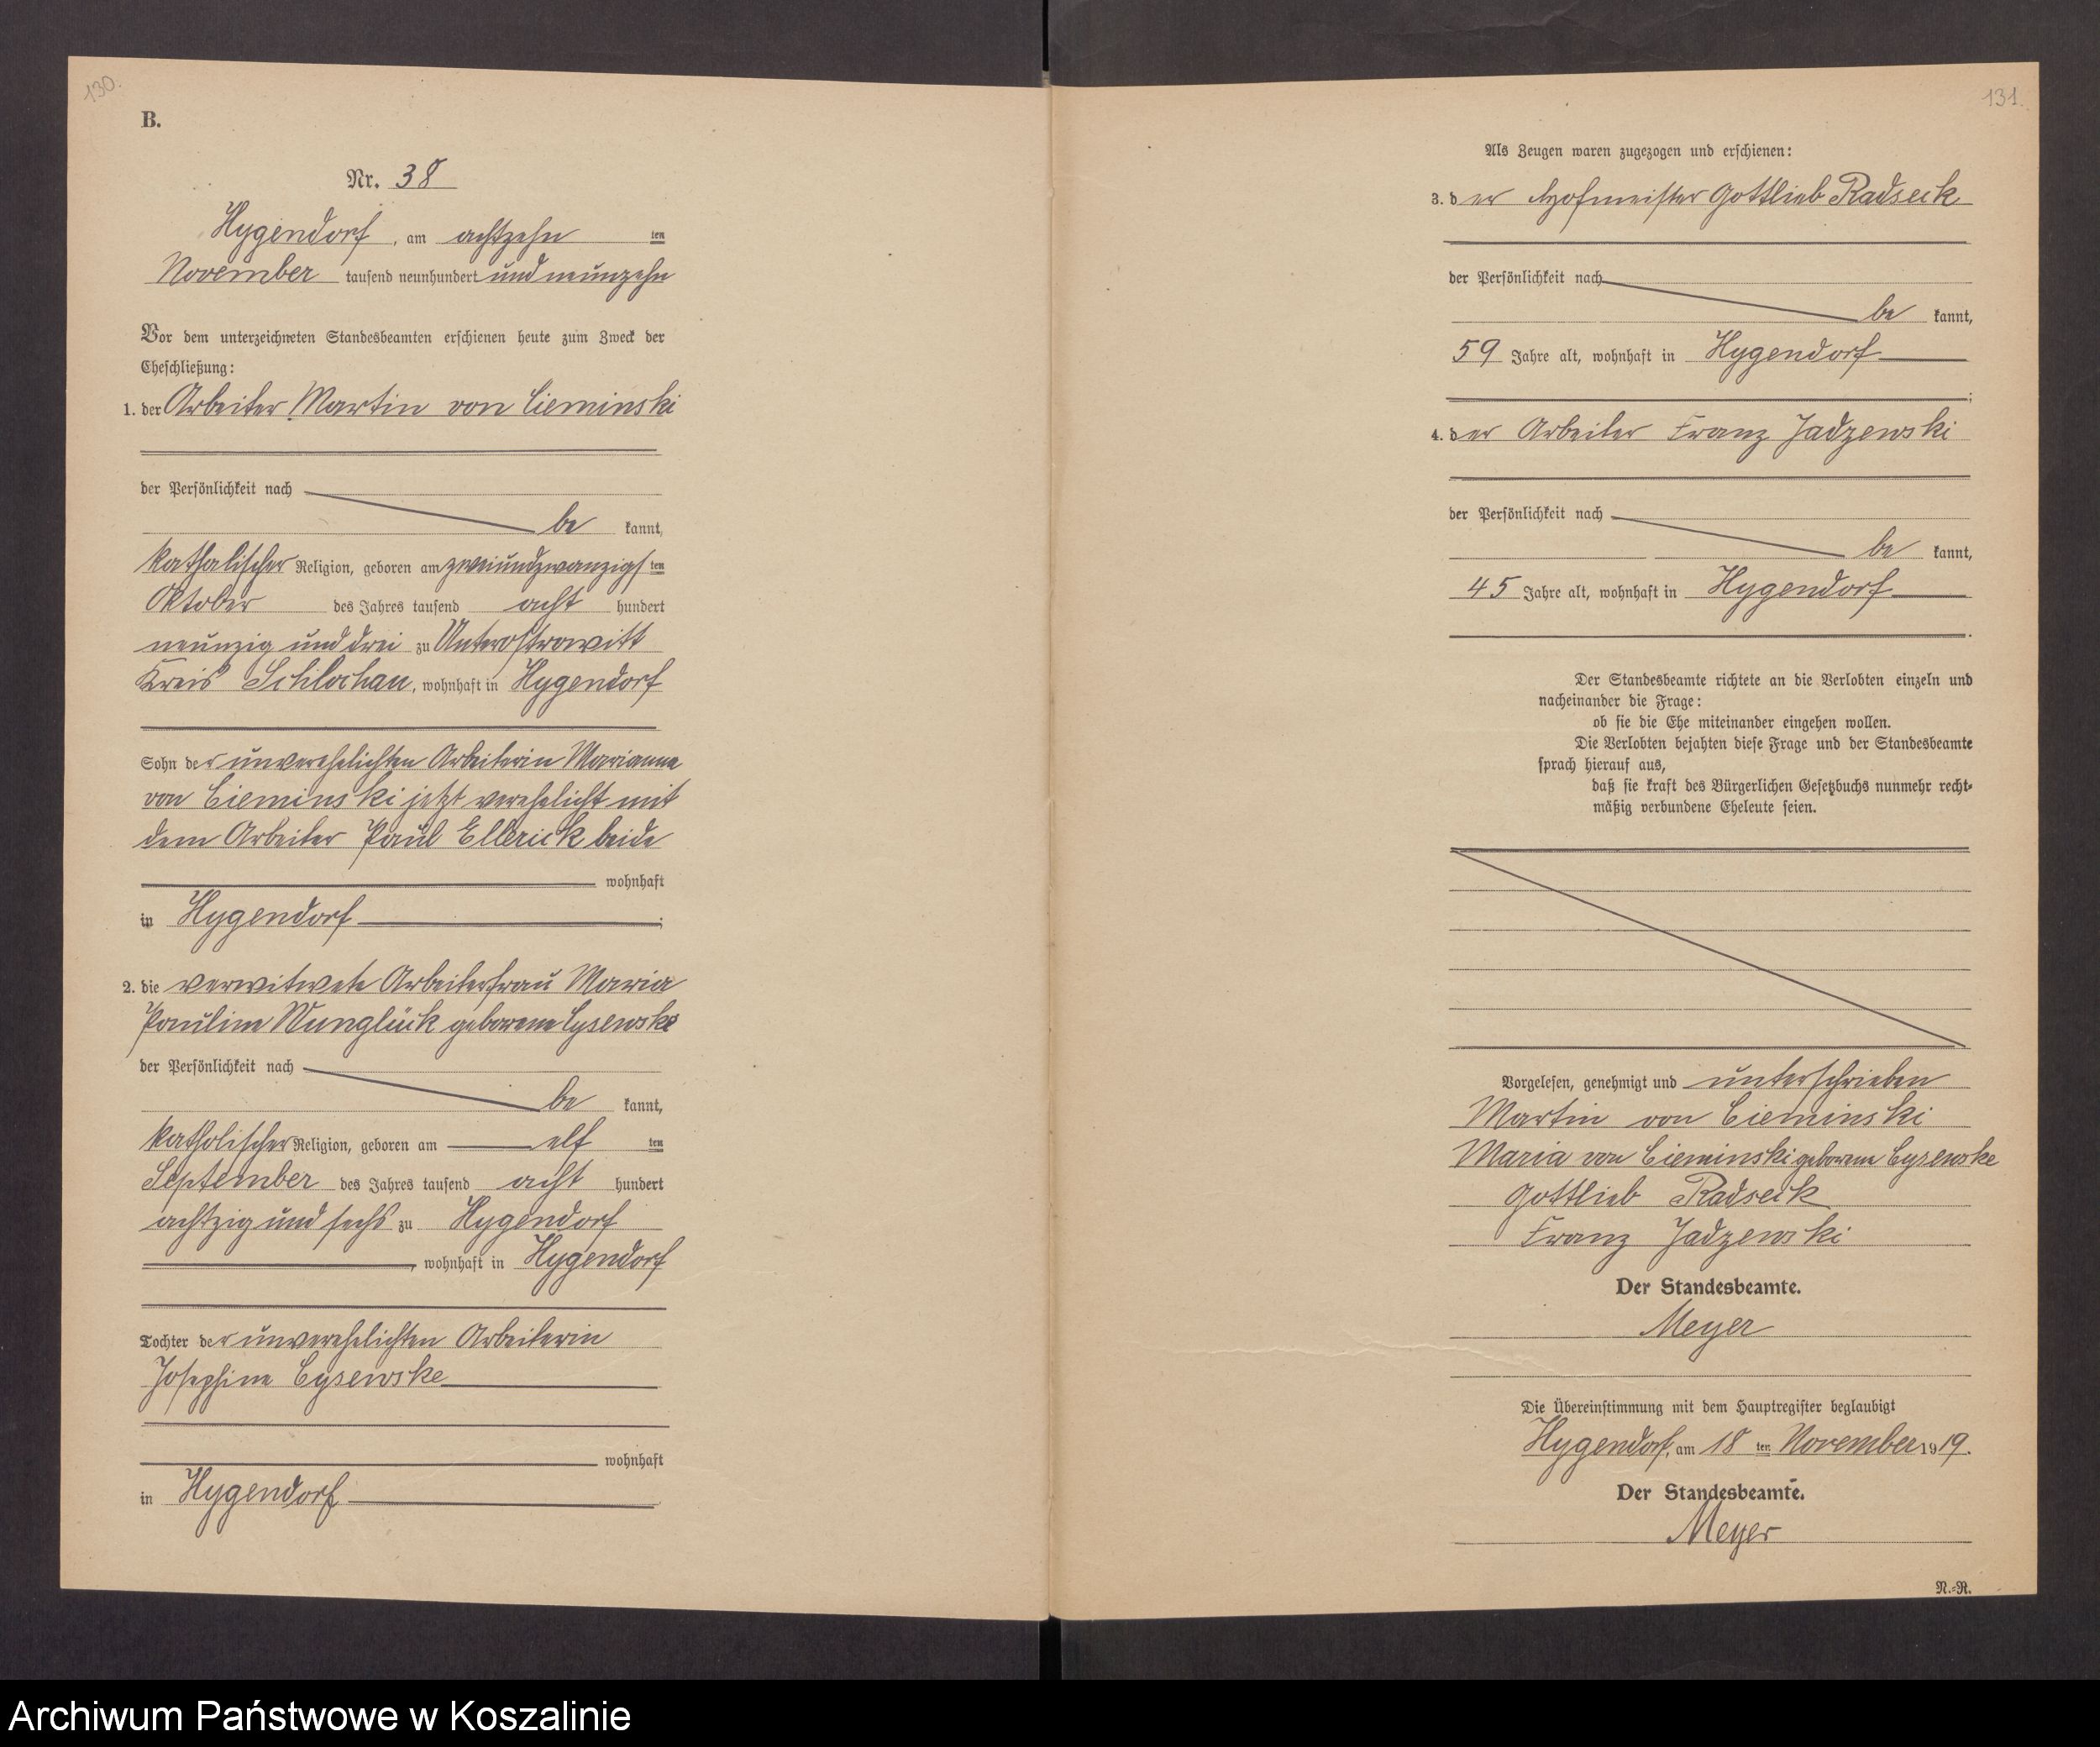 130.
B.
Nr. 38
Hygendorf, am achtzehn ten
November tausend neunhundert und neunzehn
Vor dem unterzeichneten Standesbeamten erschienen heute zum Zweck der
Eheschließung:
1. der Arbeiter Martin von Cieminski
der Persönlichkeit nach
be kannt,
katholischer Religion, geboren am zweiundzwanzigs ten
Oktober des Jahres tausend acht hundert
neunzig und drei zu Unterostrowitt
Kreis Schlochau, wohnhaft in Hygendorf
Sohn der unverehelichten Arbeiterin Marianna
von Cieminski jetzt verehelicht mit
dem Arbeiter Paul Ellerick beide
wohnhaft
in Hygendorf ;
2. die verwitwete Arbeiterfrau Maria
Pauline Wunglück geborene Cysewske
der Persönlichkeit nach
be kannt,
katholischer Religion, geboren am elf ten
September des Jahres tausend acht hundert
achtzig und sechs zu Hygendorf
, wohnhaft in Hygendorf
Tochter der unverehelichten Arbeiterin
Josephine Cysewske
wohnhaft
in Hygendorf
131.
Als Zeugen waren zugezogen und erschienen:
3. der Hofmeister Gottlieb Radseck
der Persönlichkeit nach
be kannt,
59 Jahre alt, wohnhaft in Hygendorf
;
4. der Arbeiter Franz Jadzewski
der Persönlichkeit nach
be kannt,
45 Jahre alt, wohnhaft in Hygendorf
.
Der Standesbeamte richtete an die Verlobten einzeln und
nacheinander die Frage:
ob sie die Ehe miteinander eingehen wollen.
Die Verlobten bejahten diese Frage und der Standesbeamte
sprach hierauf aus,
daß sie kraft des Bürgerlichen Gesetzbuchs nunmehr recht-
mäßig verbundene Eheleute seien.
Vorgelesen, genehmigt und unterschrieben
Martin von Cieminski
Maria von Cieminski geborene Cysewske
Gottlieb Radseck
Franz Jadzewski
Der Standesbeamte.
Meyer
Die Übereinstimmung mit dem Hauptregister beglaubigt
Hygendorf, am 18 ten November 1919.
Der Standesbeamte.
Meyer
N.-R.
Archiwum Państwowe w Koszalinie